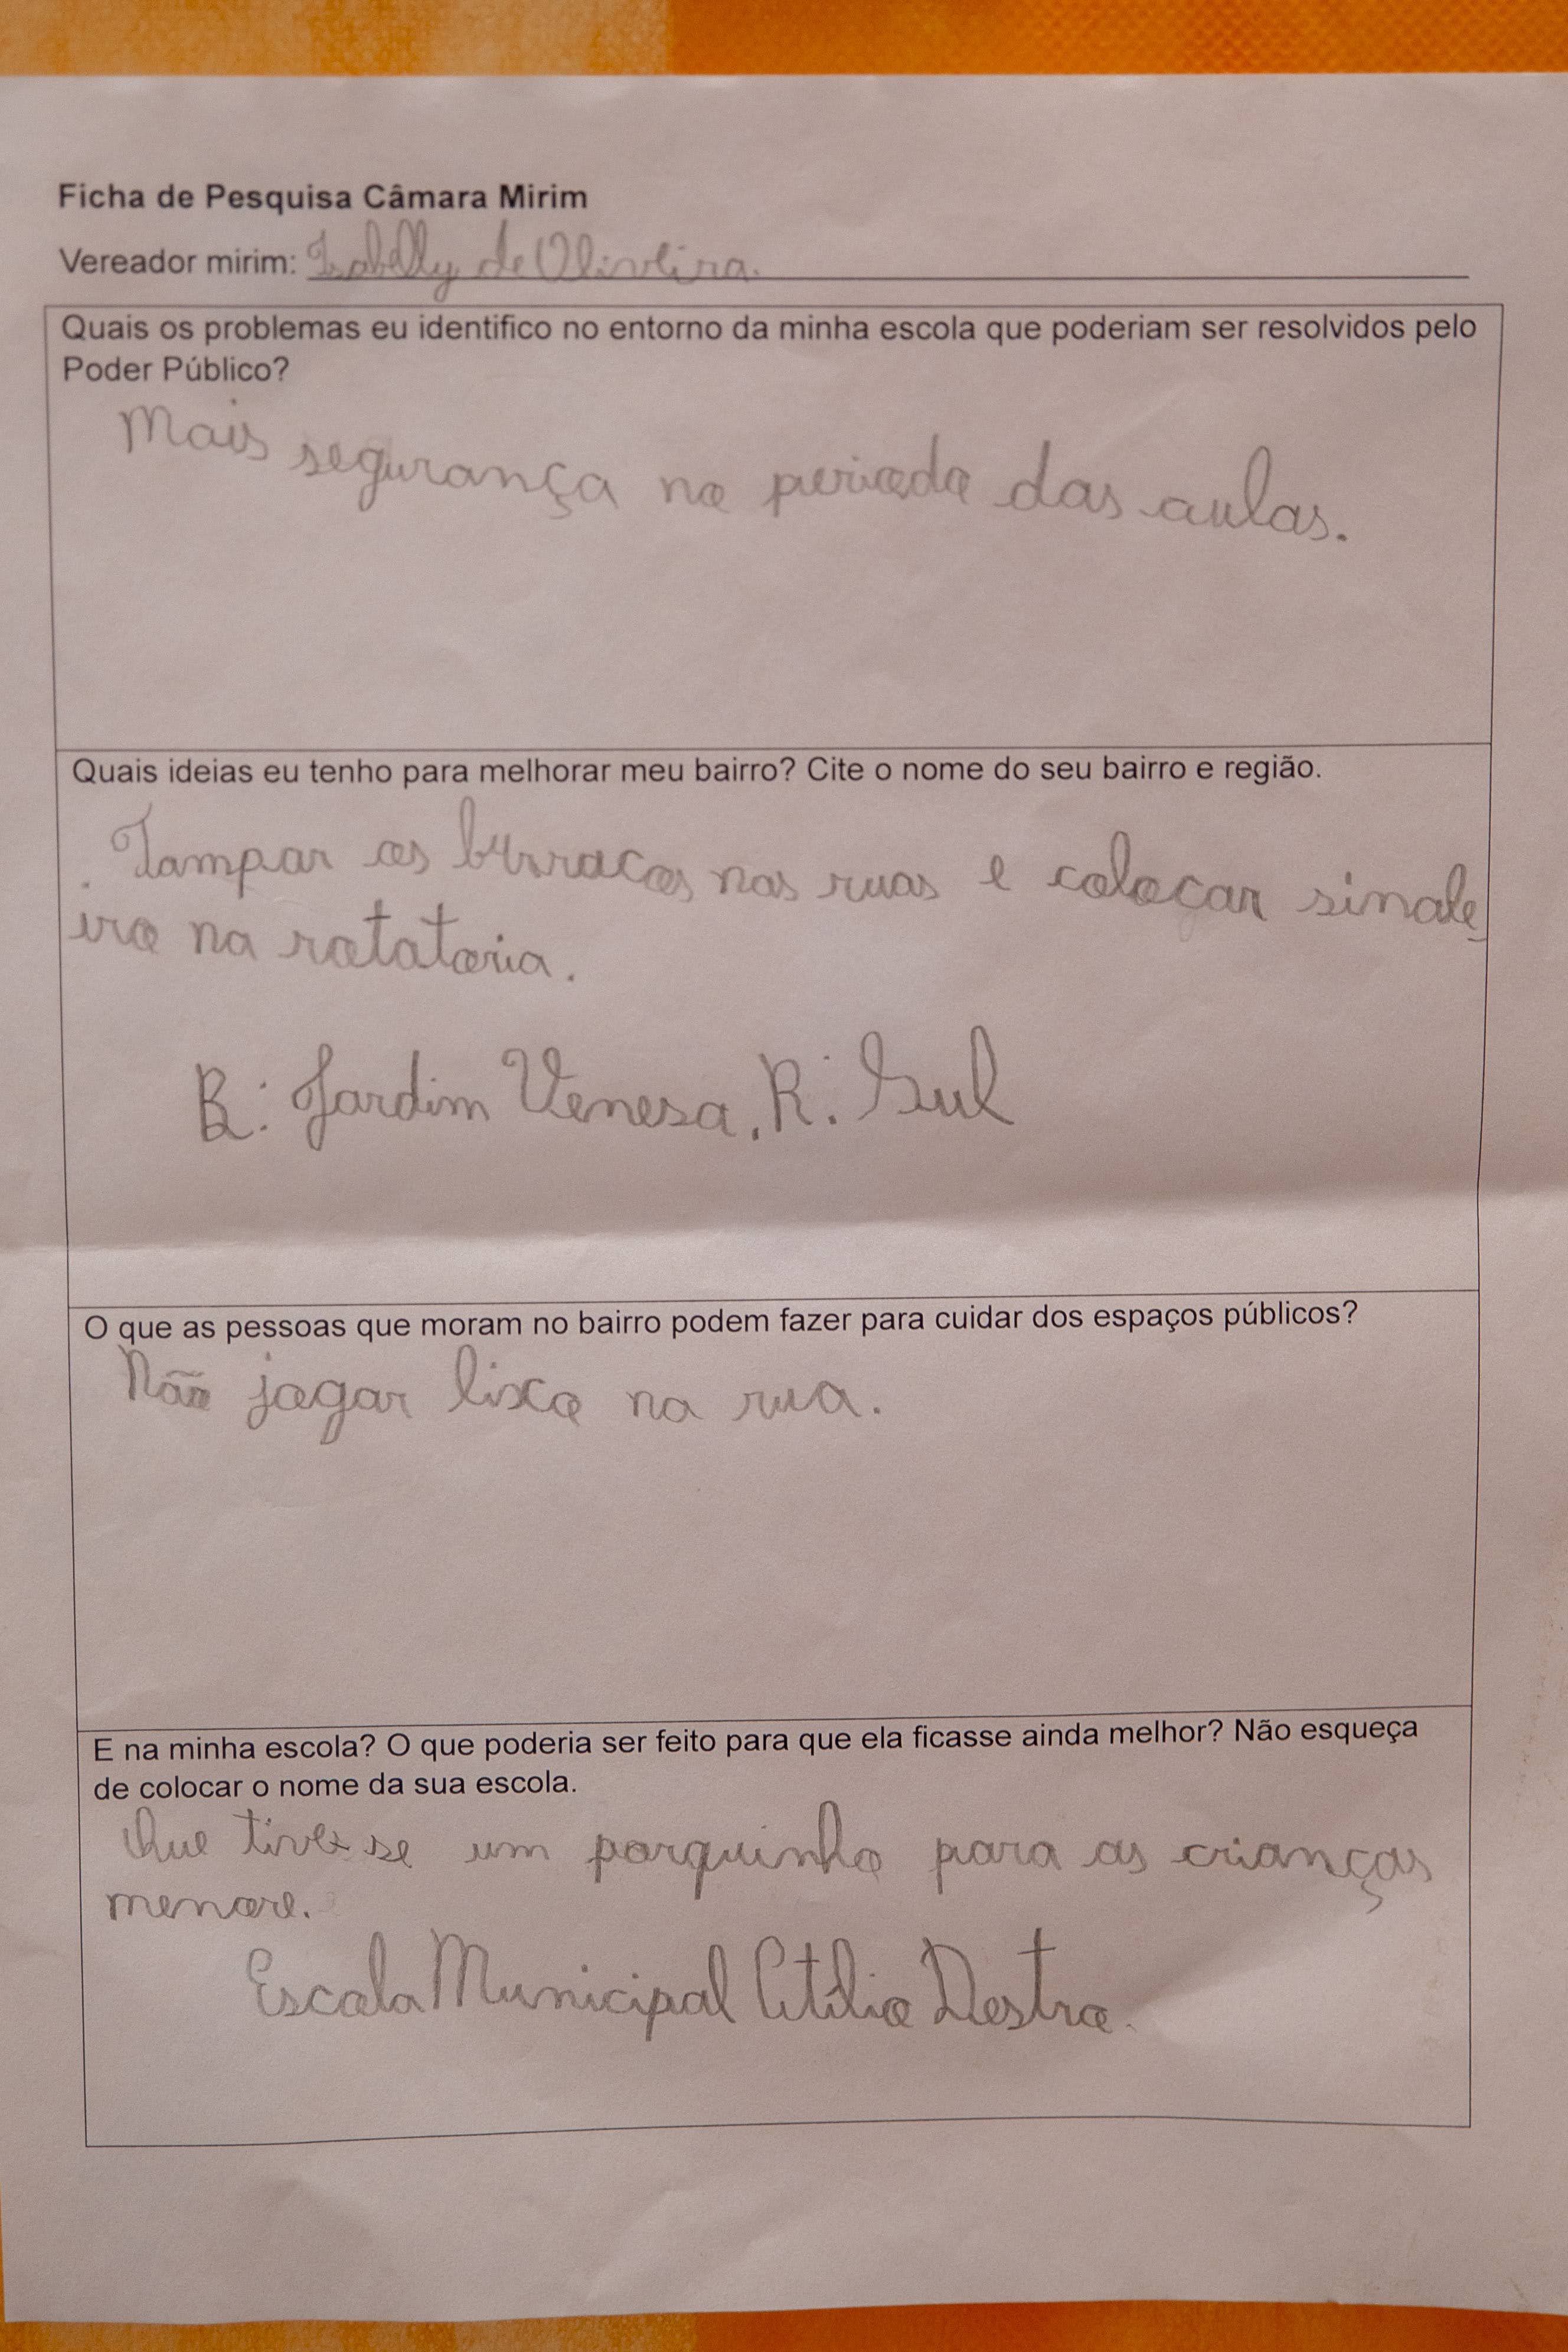 Ficha de Pesquisa Câmara Mirim
Vereador mirim: Isabelly de Oliveira.
Quais os problemas eu identifico no entorno da minha escola que poderiam ser resolvidos pelo
Poder Público?
Mais segurança no periodo das aulas.
Quais ideias eu tenho para melhorar meu bairro? Cite o nome do seu bairro e região.
Tampar os burracos nas ruas e colocar sinale
iro na rotatoria.
B: Jardim Venesa, R: Sul
O que as pessoas que moram no bairro podem fazer para cuidar dos espaços públicos?
Não jogar lixo na rua.
E na minha escola? O que poderia ser feito para que ela ficasse ainda melhor? Não esqueça
de colocar o nome da sua escola.
Que tivesse um parquinho para as crianças
menore.
Escola Municipal Atílio Destro.